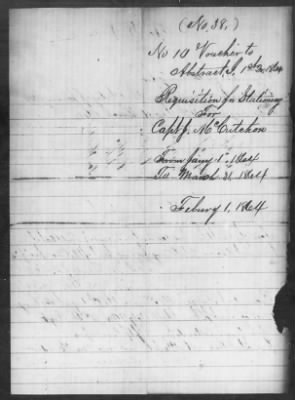 (No. 38.)
No 10 Voucher to
Abstract, 1st Qr 1864
Requisition for Stationery
For
Capt J. McCutchon
From Jany 1st 1864
To March 31. 1864
Febury 1. 1864